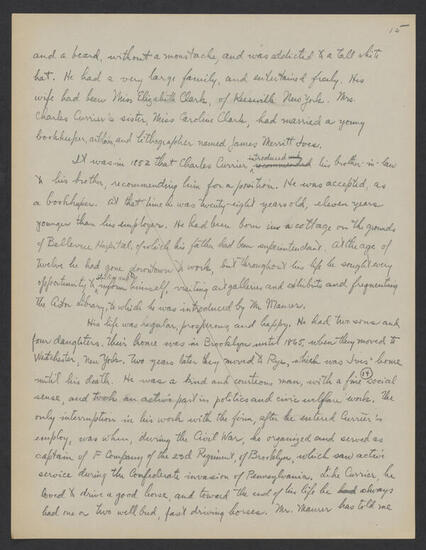 15
and a beard, without a moustache, and was addicted to a tall white
hat. He had a very large family, and entertained freely. His
wife had been Miss Elizabeth Clark, of Keesville New York. Mrs.
Charles Currier's sister, Miss Caroline Clark, had married a young
bookkeeper, artist and lithographer named James Merritt Ives.
It was in 1852 that Charles Currier introduced recommended his brother-in-law
to his brother, recommending him for a position. He was accepted, as
a bookkeeper. At that time he was twenty-eight years old, eleven years
younger than his employer. He had been born in a cottage on the grounds
of Bellevue Hospital, of which his father had been superintendant. At the age of
twelve he had gone downtown to work, but throughout his life he sought every
opportunity to inform himself, visiting art galleries and exhibits and frequenting
the Astor Library, to which he was introduced by Mr. Maurer.
His life was regular, prosperous and happy. He had two sons and
four daughters. Their home was in Brooklyn until 1865, when they moved to
Westchester, New York. Two years later they moved to Rye, which was Ives' home
until his death. He was a kind and courteous man, with a fine (14) social
sense, and took an active part in politics and civic welfare work. The
only interruption in his work with the firm, after he entered Currier's
employ, was when, during the Civil War, he organized and served as
captain of F Company of the 23rd Regiment, of Brooklyn, which saw active
service during the Confederate invasion of Pennsylvania. Like Currier, he
loved to drive a good horse, and toward the end of his life he had always
had one or two well bred, fast driving horses. Mr. Maurer has told me